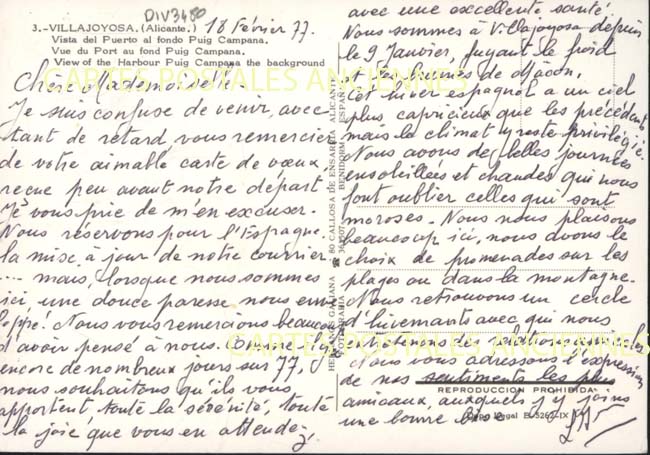 DIV3480
3.-VILLAJOYOSA. (Alicante.) 18 Février 77.
Vista del Puerto al fondo Puig Campana.
Vue du Port au fond Puig Campana.
View of the Harbour Puig Campana the background
CARTES POSTALES ANCIENNES
Chère Mademoiselle.
Je suis confuse de venir, avec
tant de retard, vous remercier
de votre aimable carte de vœux
reçue peu avant notre départ.
Je vous prie de m'en excuser.
Nous réservons pour l'Espagne,
la mise à jour de notre courrier
.... mais, lorsque nous sommes
ici une douce paresse nous
Nous vous remercions beaucoup
d'avoir pensé à nous. Comme il y a
encore de nombreux jours sur 77,
nous souhaitons qu'ils vous
apportent toute la sérénité, toute
la joie que vous en attendez,
avec une excellente santé.
Nous sommes à Villajoyosa depuis
le 9 Janvier, fuyant le froid
et les brumes de Mâcon.
Cet hiver espagnol a un ciel
plus capricieux que les précédents
mais la climat y reste privilégié.
Nous avons de belles journées
ensoleillées et chaudes qui nous
font oublier celles qui sont
moroses. Nous nous plaisons
beaucoup ici, nous avons le
choix de promenades sur les
plages ou dans la montagne.
Nous retrouvons un cercle
d'hivernants avec qui nous
entretenons des relations amicales
Nous vous adressons l'expression
de nos sentiments les plus
REPRODUCCION PROHIBIDA
amicaux, auxquels j'y joins
une bonne bise.
CARTES POSTALES ANCIENNES
HERMANOS GALIANA
80 CALLOSA DE ENSARRIA ALICANTE
FOTOGRAFIA
BENIDORM ESPAÑA